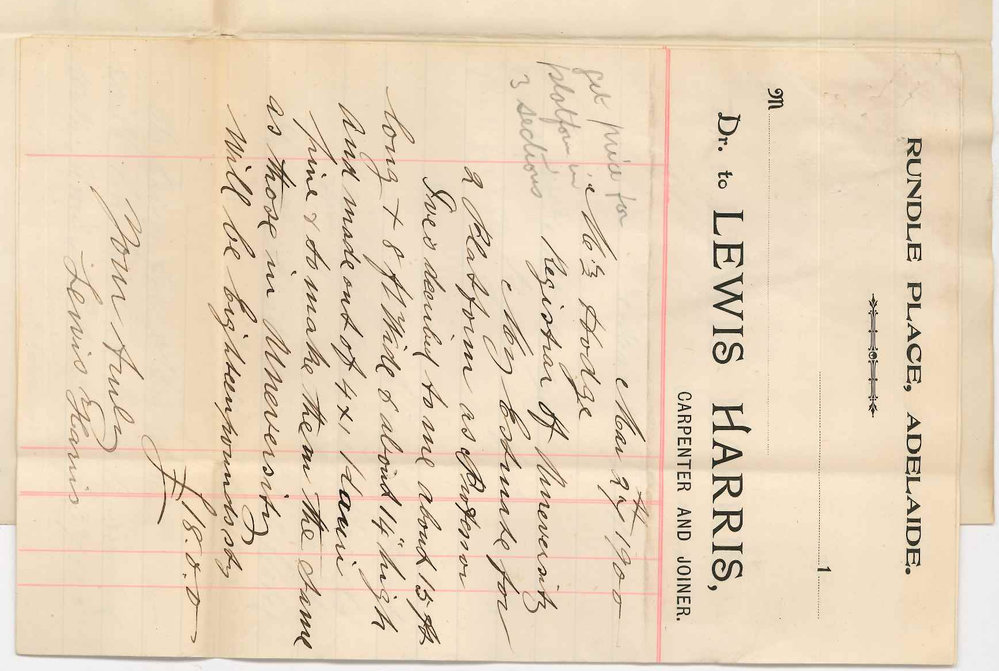 RUNDLE PLACE, ADELAIDE.
1
M
Dr. to LEWIS HARRIS,
CARPENTER AND JOINER.
Mar 27th 1900
get price for
platform in
3 sections
Mr Hodge
Registrar of Uneversity
My Estimate for
2 Platform as Professor
Ives decribed to me about 15 ft
long + 8 ft wide & about 14" high
and made out of 4 x 1
pine & to make them the same
as those in Uneversity
Will be Eighteen pounds
£18.0.0
Yours truly
Lewis Harris